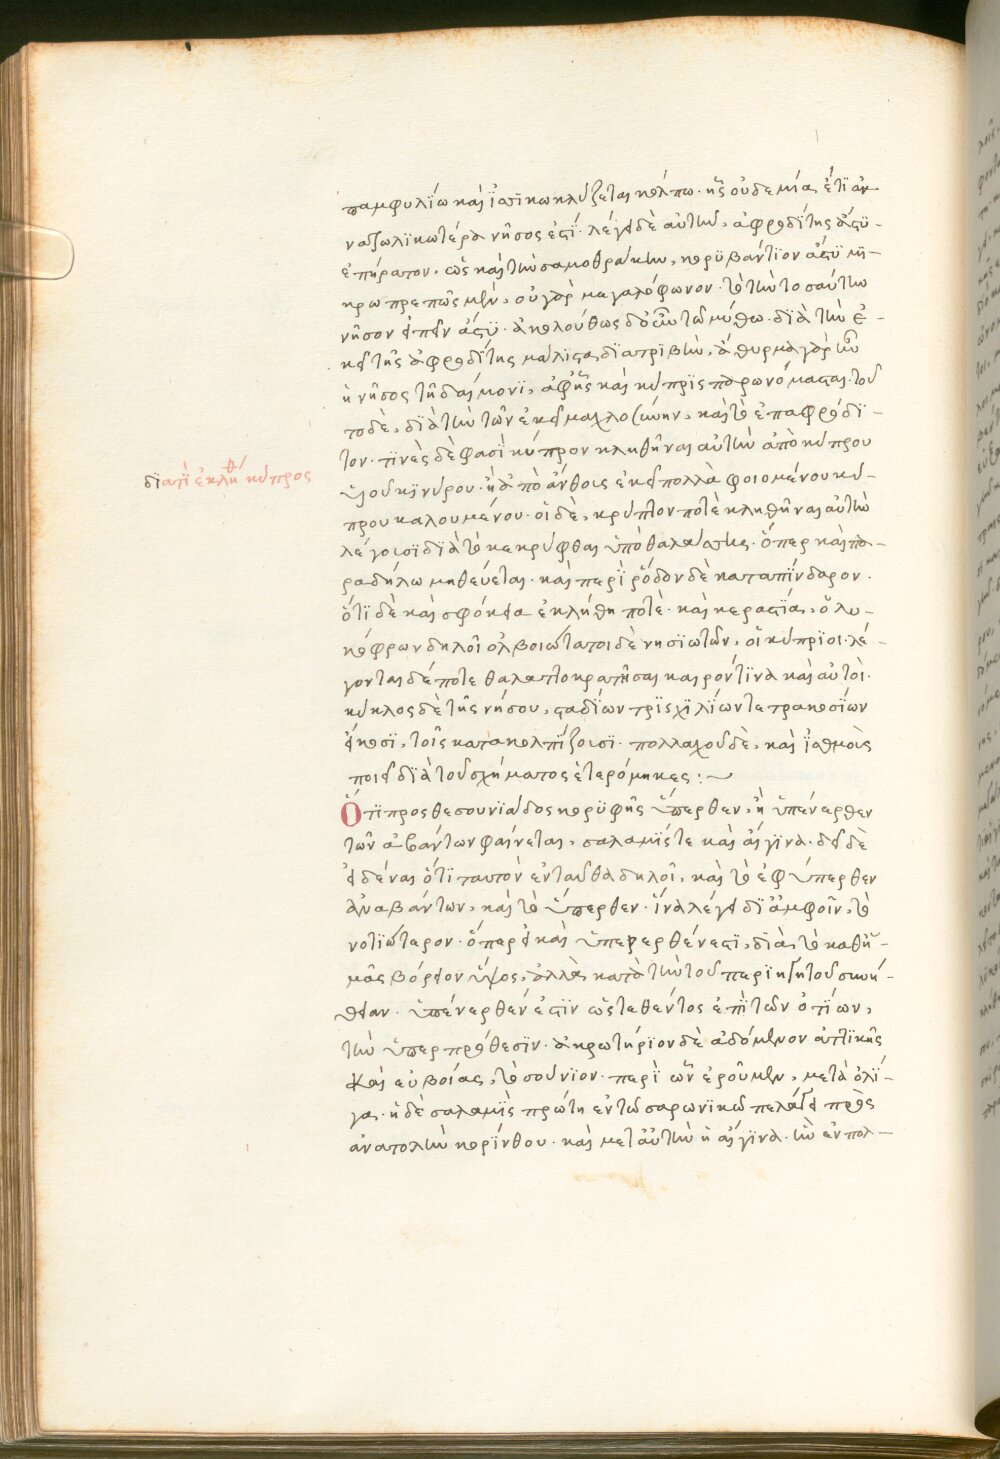 παμφυλίω καὶ ἰσσικω κλύζεται κόλπω· ἧς οὐδεμία ἔτι ἀν
ναζωλικωτέρα νῆσος ἐστί· λέγει δὲ αὐτὴν, ἀφροδίτης ἄστυ·
ἐπήρατον, ὡς καὶ τὴν σαμοθράκην, κορυβάντιον ἄστυ μι-
κρωπρεπῶς μὲν, οὐ γὰρ μεγαλόφωνον· τὸ τὴν τοσαύτην
νῆσον εἰπεῖν ἄστυ· ἀκολούθως δ' οὖν τῶ μύθω· διὰ τὴν ἐ-
κεῖ τῆς ἀφροδίτης μάλιστα διατριβὴν, ἄθυρμα γὰρ οὖν
ἡ νῆσος τῆ δαίμονι, ἀφ' ἧς καὶ κύπρις παρωνόμασται· τοῦ
το δὲ, διὰ τὴν τῶν ἐκεῖ μαχλοσύνην, καὶ τὸ ἐπαφρόδι-
τον· τινὲς δὲ φασὶ κύπρον κληθῆναι αὐτὴν ἀπὸ κύπρου
διατὶ ἐκλήθη κύπρος
υἱοῦ κινύρου· ἢ ἀπὸ ἄνθους ἐκεῖ πολλὰ φυομένου κύ-
πρου καλουμένου· οἱ δὲ, κρύπτον ποτὲ κληθῆναι αὐτὴν
λέγουσι διὰ τὸ κεκρύφθαι ὑπὸ θαλάσσης· ὅπερ καὶ πα-
ραδήλω μηθεύεται· καὶ περὶ ῥόδον δὲ κατὰ πίνδαρον·
ὅτι δὲ καὶ σφόκεια ἐκλήθη ποτὲ· καὶ κεραστία, ὁ λυ-
κόφρων δηλοῖ ὀλβοιώτατοι δὲ νησιωτῶν, οἱ κύπριοι· λέ-
γονται δέ ποτε θαλαττοκρατῆσαι καιρόν τινα καὶ αὐτοὶ·
κύκλος δὲ τῆς νήσου, σταδίων τρισχιλίων τετρακοσίων
εἴκοσι, τοῖς κατακολπίζουσι· πολλαχοῦ δὲ, καὶ ἰσθμοὺς
ποιεῖ διὰ τοῦ σχήματος ἑτερόμηκες:~
Ὅτι προσθε σουνιάδος κορυφῆς ὕπερθεν, ἢ ὑπένερθεν
τῶν ἀβάντων φαίνεται, σαλαμίς τε καὶ αἴγινα· δεῖ δὲ
εἰδέναι ὅτι ταυτὸν ἐνταῦθα δηλοῖ, καὶ τὸ ἐφύπερθεν
ἀναβάντων, καὶ τὸ ὕπερθεν· ἵνα λέγει δι' ἀμφοῖν, τὸ
νοτιώτερον· ὅπερ εἰ καὶ ὑπερερθέν ἐστι, διὰ τὸ καθ' ἡ-
μᾶς βόρειον ὕψος, ἀλλὰ κατὰ τὴν τοῦ περιηγητοῦ συνή-
θειαν· ὑπένερθέν ἐστιν ὡς τεθέντος ἐπὶ τῶν ὀτίων,
τὴν ὑπερ πρόθεσιν· ἀκρωτήριον δὲ ἀδόμενον ἀττικῆς
καὶ εὐβοίας, τὸ σούνιον· περὶ ὧν ἐροῦμεν, μετὰ ὀλί-
γα· ἡ δὲ σαλαμὶς πρώτη ἐν τῶ σαρωνικῶ πελάγει πρὸς
ἀνατολὴν κορίνθου· καὶ μετ' αὐτὴν ἡ αἴγινα· ἣν ἐν πολ-